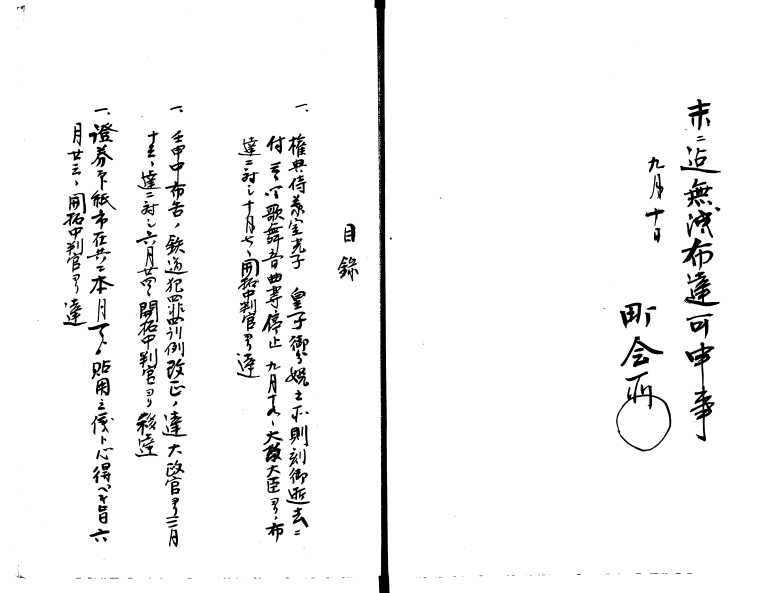 末ニ迠無洩布達可申事
九月十日
町会所
目録
一、権典侍葉室光子 皇子御分娩之所則刻御逝去ニ
付是ゟ歌舞音曲等停止 九月十九、大政大臣ヨリ布
達ニ対シ十月七、開拓中判官ヨリ達
一、壬申中布告ノ鉄道犯罪罰例改正ノ達大政官ヨリ三月
十五、達ニ対シ六月廿四、開拓中判官ヨリ移達
一、證券界紙市在共ニ本月ヨリ貼用之儀ト心得ベキ旨六
月廿三、開拓中判官ヨリ達